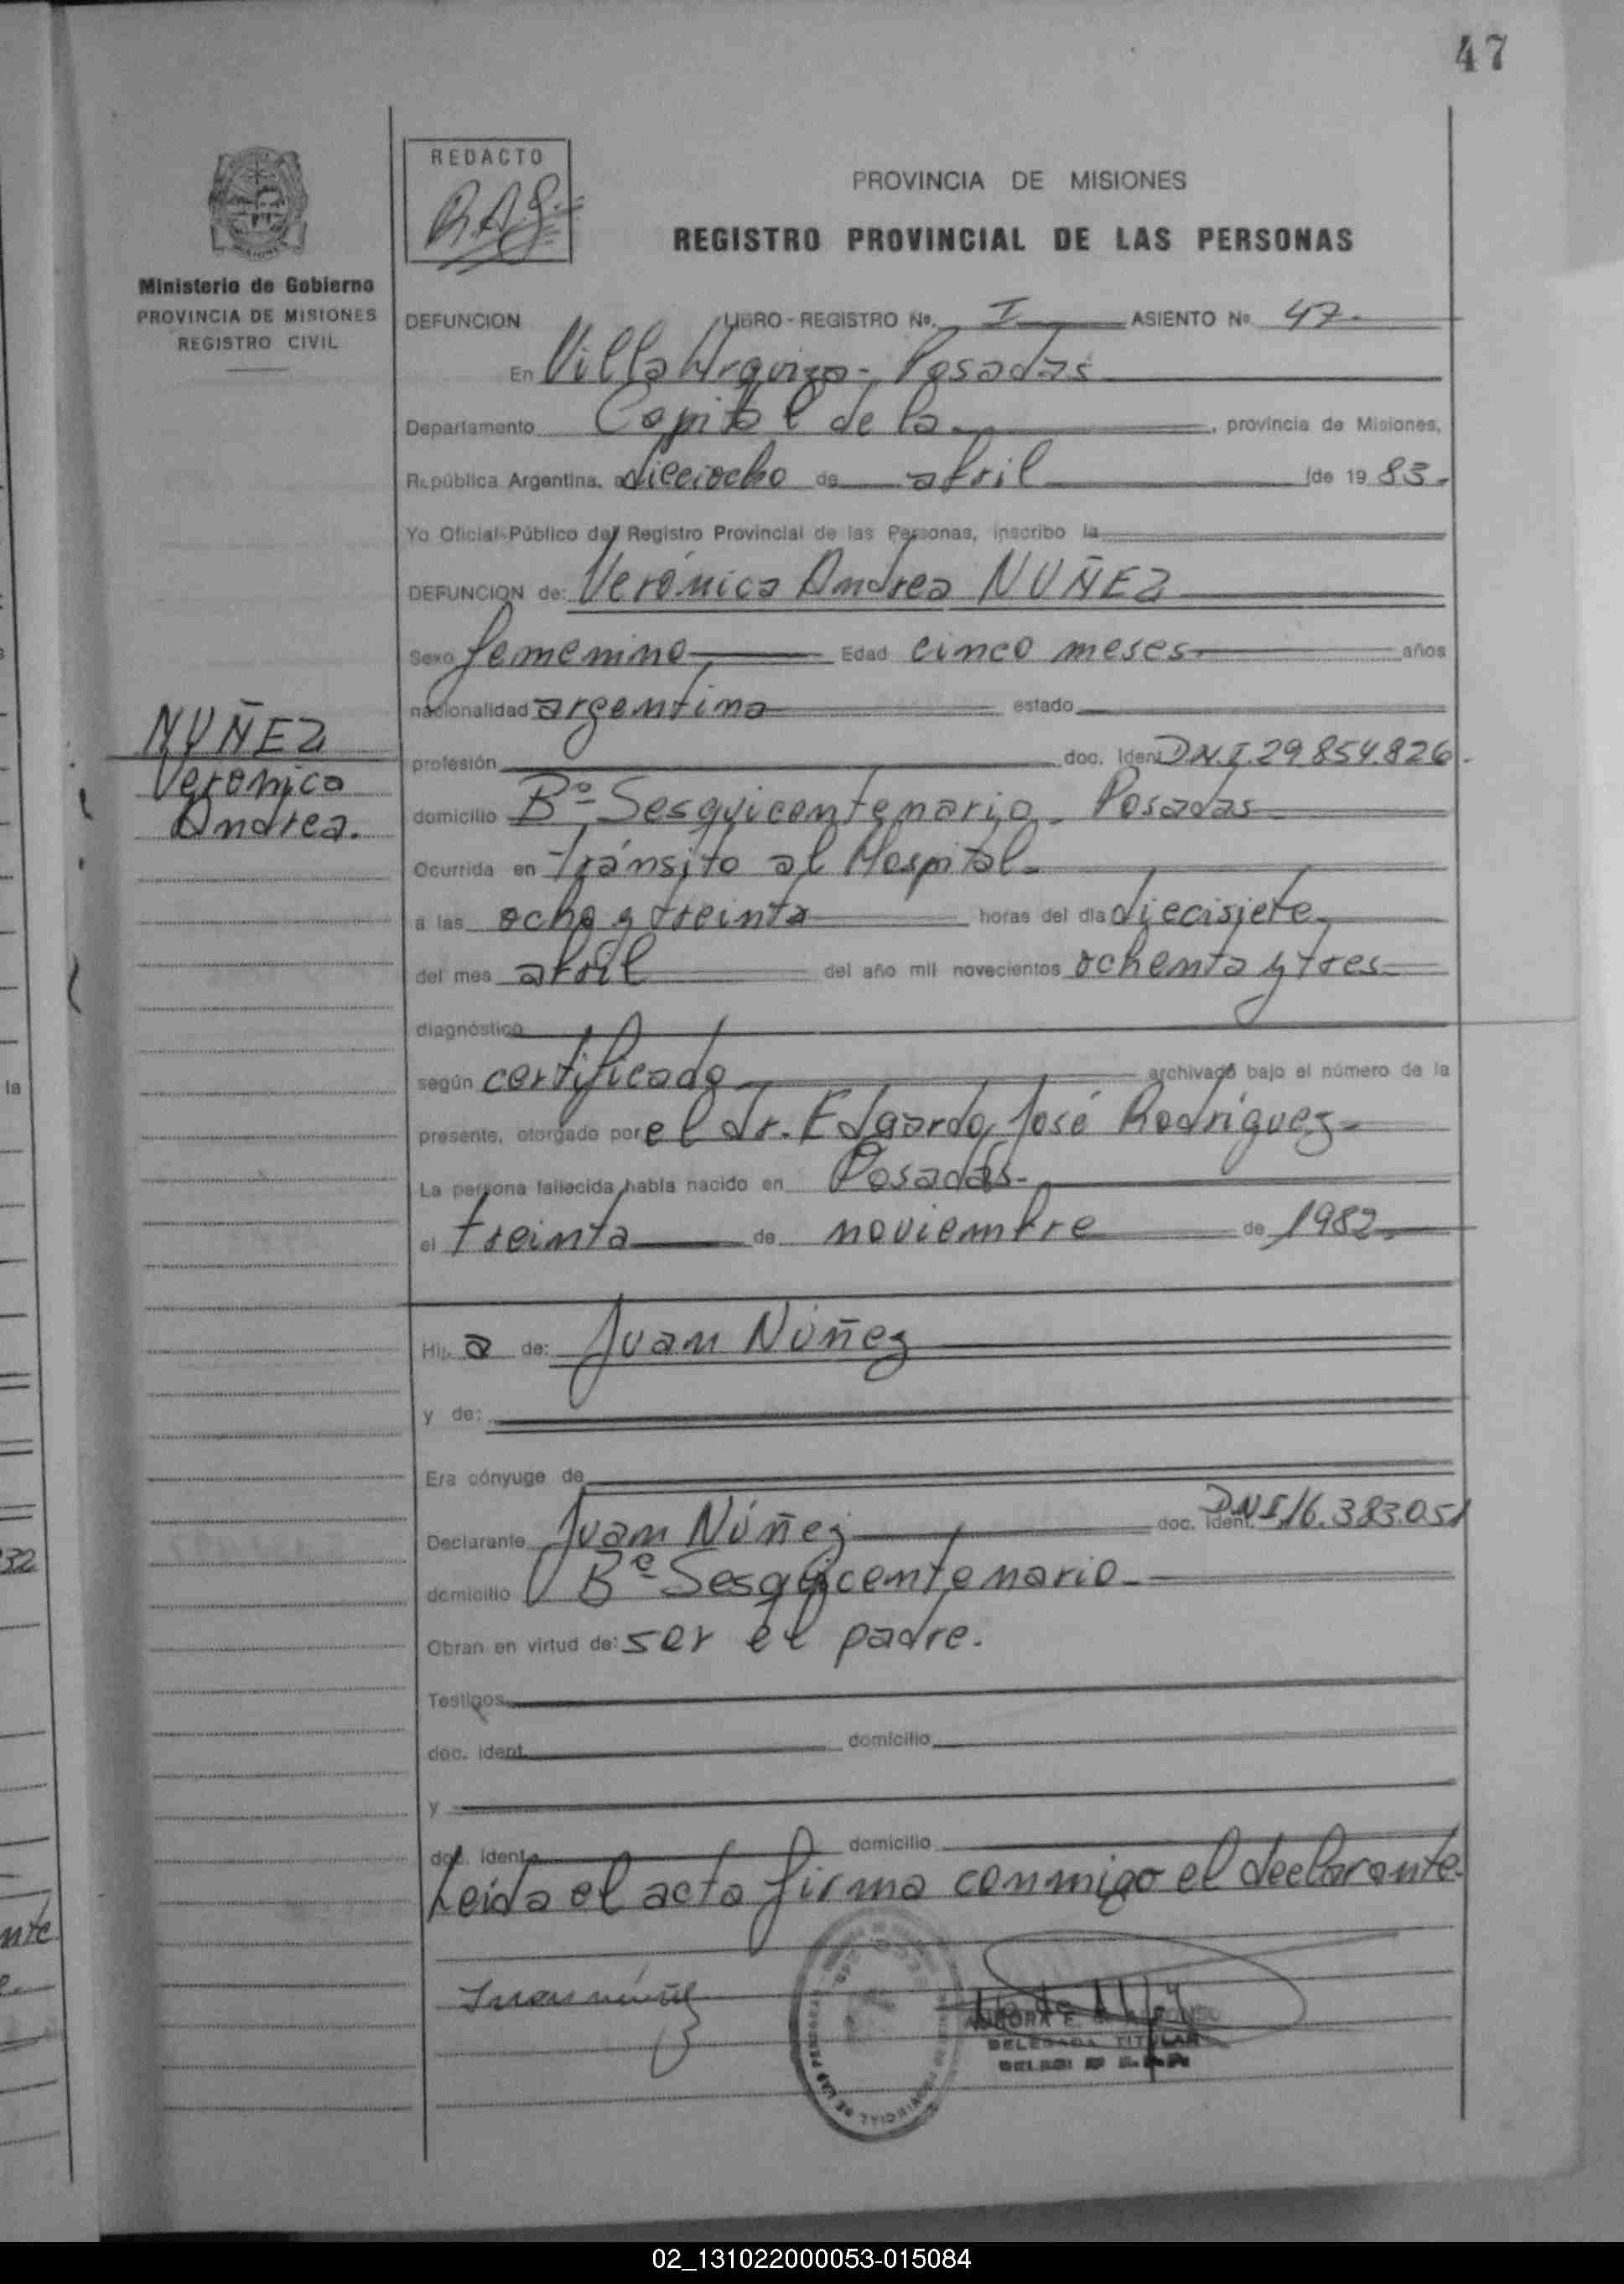 47
REDACTO
PROVINCIA DE MISIONES
REGISTRO PROVINCIAL DE LAS PERSONAS
Ministerio de Gobierno
PROVINCIA DE MISIONES
REGISTRO CIVIL
DEFUNCION LIBRO - REGISTRO No. I ASIENTO No. 47.-
En Villa Urquiza - Posadas
Departamento Capital de la , provincia de Misiones,
República Argentina, a dieciocho de abril de 19 83.
Yo Oficial Público del Registro Provincial de las Personas, inscribo la
DEFUNCION de: Verónica Andrea NUÑEZ
Sexo femenino Edad cinco meses años
nacionalidad argentina estado
NUÑEZ
Veronica
Andrea.
profesión doc. Ident D.N.I. 29.854.826.
domicilio Bº Sesquicentenario - Posadas
Ocurrida en Tránsito al Hospital
a las ocho y treinta horas del día diecisiete
del mes abril del año mil novecientos ochenta y tres
diagnóstico
según certificado archivado bajo el número de la
presente, otorgado por el dr. Edgardo José Rodríguez
La persona fallecida había nacido en Posadas
el treinta de noviembre de 1982
Hij a de: Juan Núñez
y de:
Era cónyuge de
Declarante Juan Núñez doc. ident. DNI 16.383.051
domicilio Bº Sesquicentenario
Obran en virtud de: ser el padre.
Testigos
doc. ident. domicilio
y
doc. ident. domicilio
Leída el acta firma conmigo el declarante
Juan núñez
DELEGADA TITULAR
la
32
nte
02_131022000053-015084